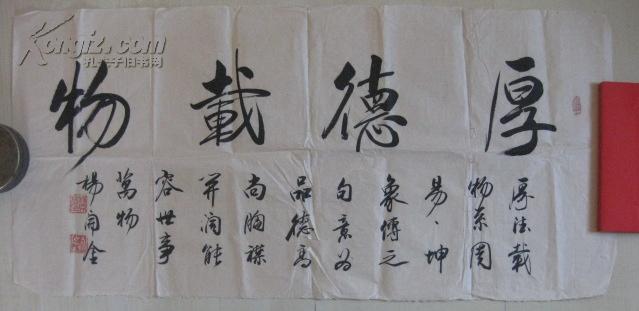 厚德載物
厚德載
物系周
易·坤
象傳之
句意為
品德高
尚胸襟
開闊能
容世事
萬物
楊開金
Kongfz.com
孔夫子旧书网